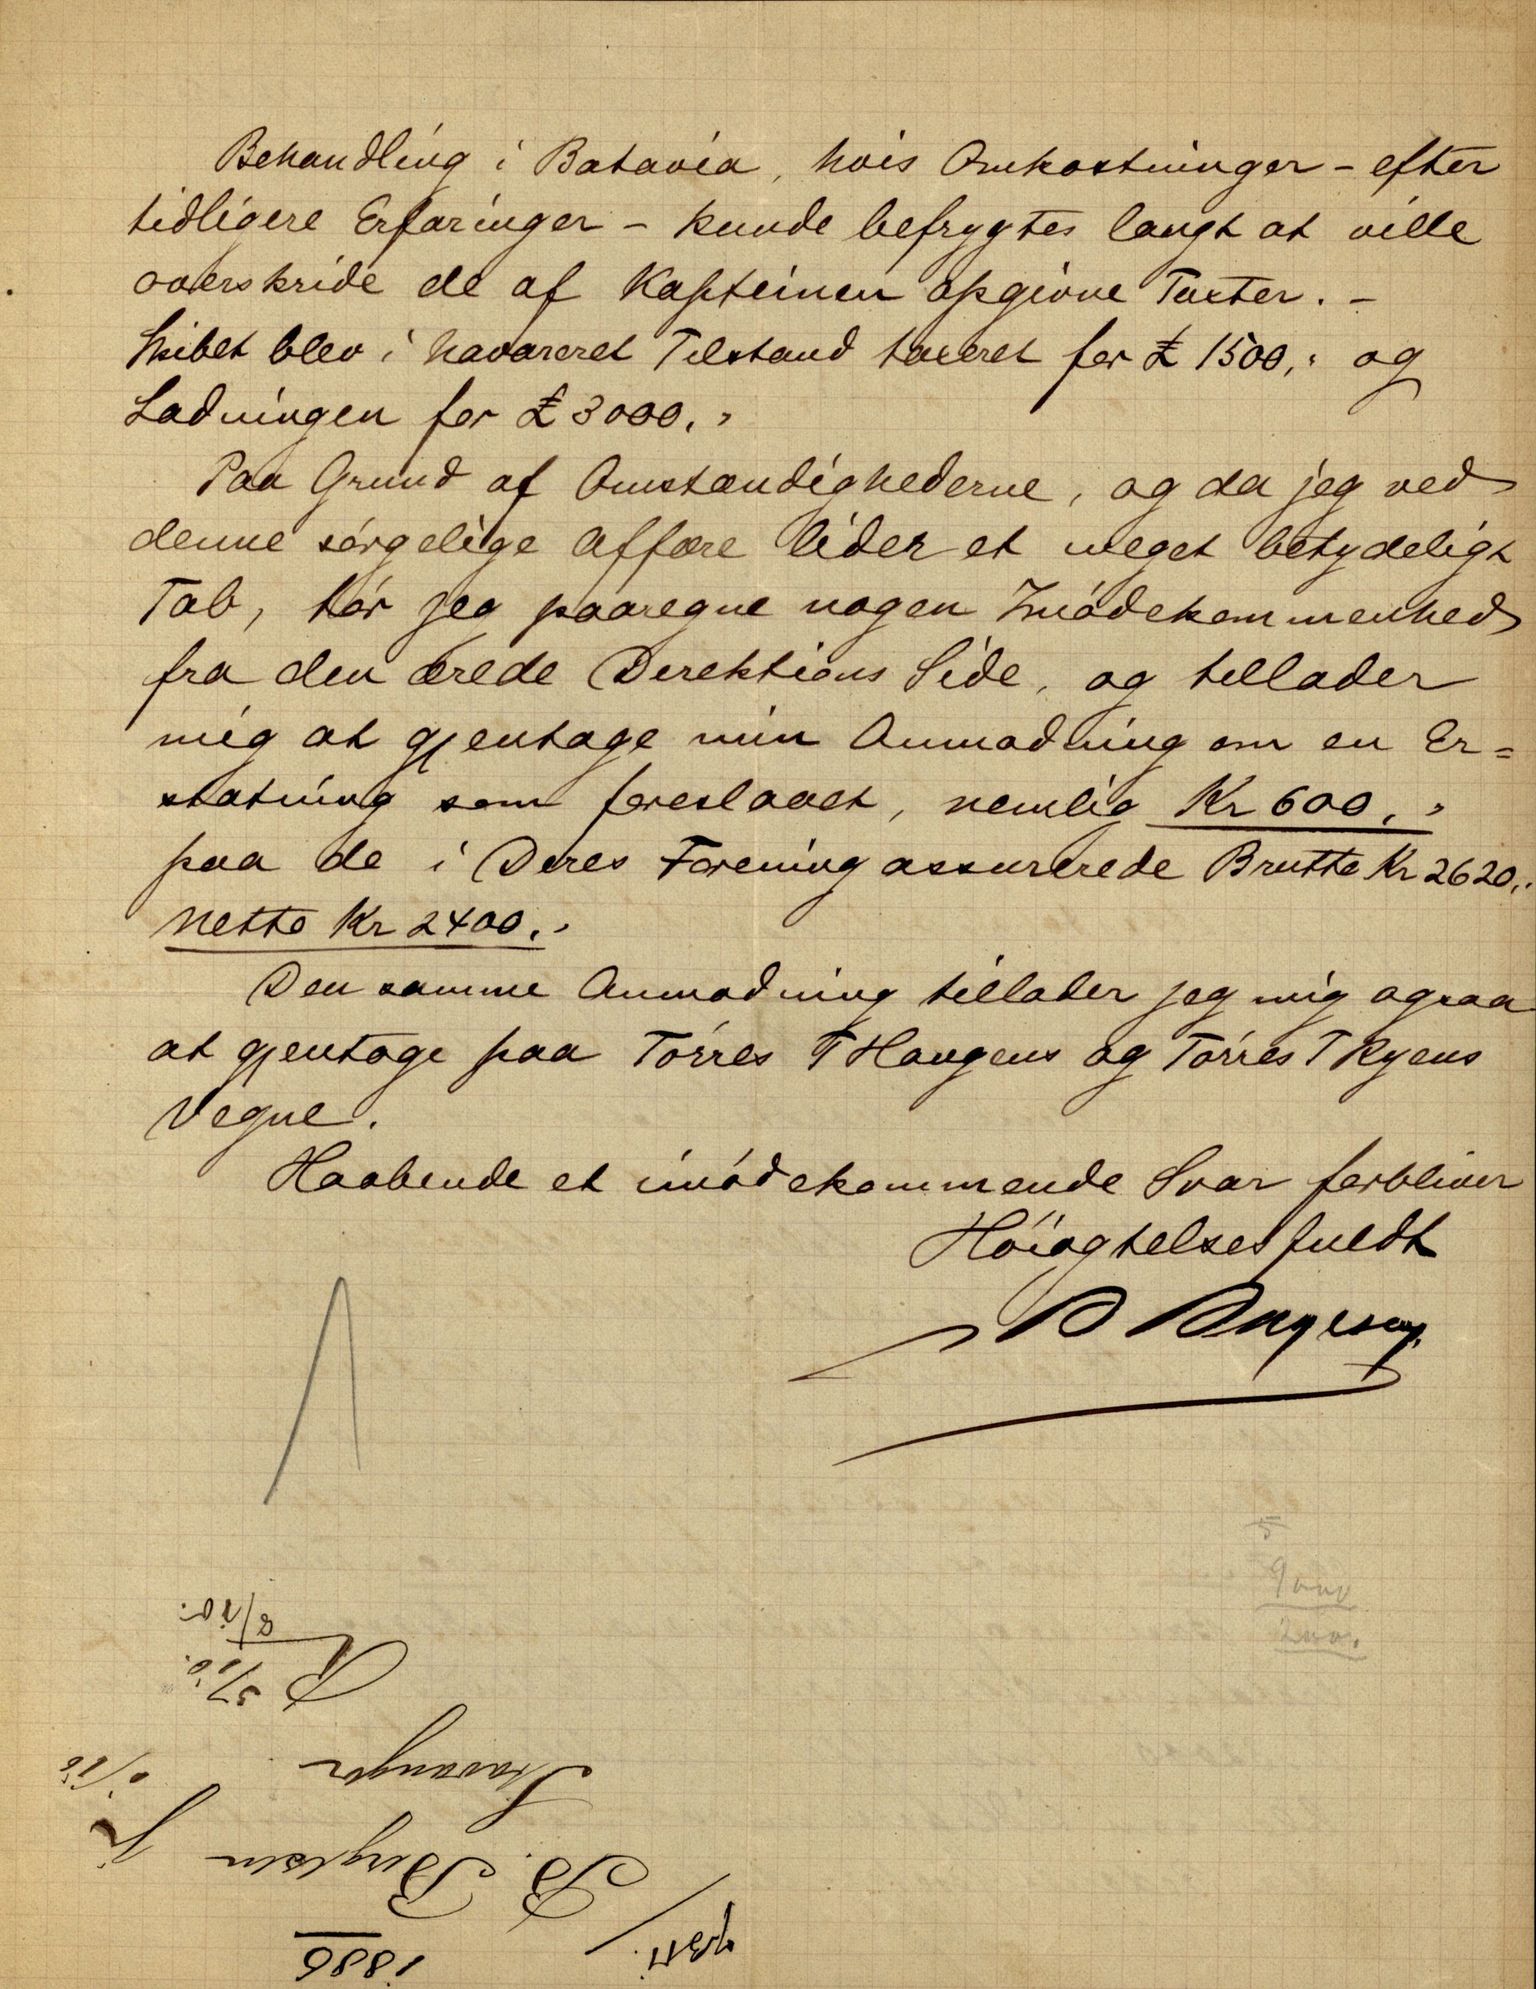 Behandling i Batavia, hvis Omkostninger – efter
tidligere Erfaringer – kunde befrygtes langt at ville
overskride de af Kapteinen opgivne Taxter. –
Skibet blev i havareret Tilstand taxeret for £ 1500,. og
Ladningen for £ 3000,.
Paa Grund af Omstændighederne, og da jeg ved
denne sórgelige Affære lider et meget betydeligt
Tab, tór jeg paaregne nogen Imódekommenhed
fra den ærede Direktions Side, og tillader
mig at gjentage min Anmodning om en Er=
statning som foreslaaet, nemlig Kr 600,.
paa de i Deres Forening assurerede Brutto Kr 2620,.
netto Kr 2400,.
Den samme Anmodning tillader jeg mig ogsaa
at gjentage paa Tórres T Haugens og Tórres T Ryens
Vegne.
Haabende et imódekommende Svar forbliver
Hóiagtelsesfuldt
B Bergesen
5
9000
200.
1886
B. Bergesen
Stavanger
R 5/10.
8/10.